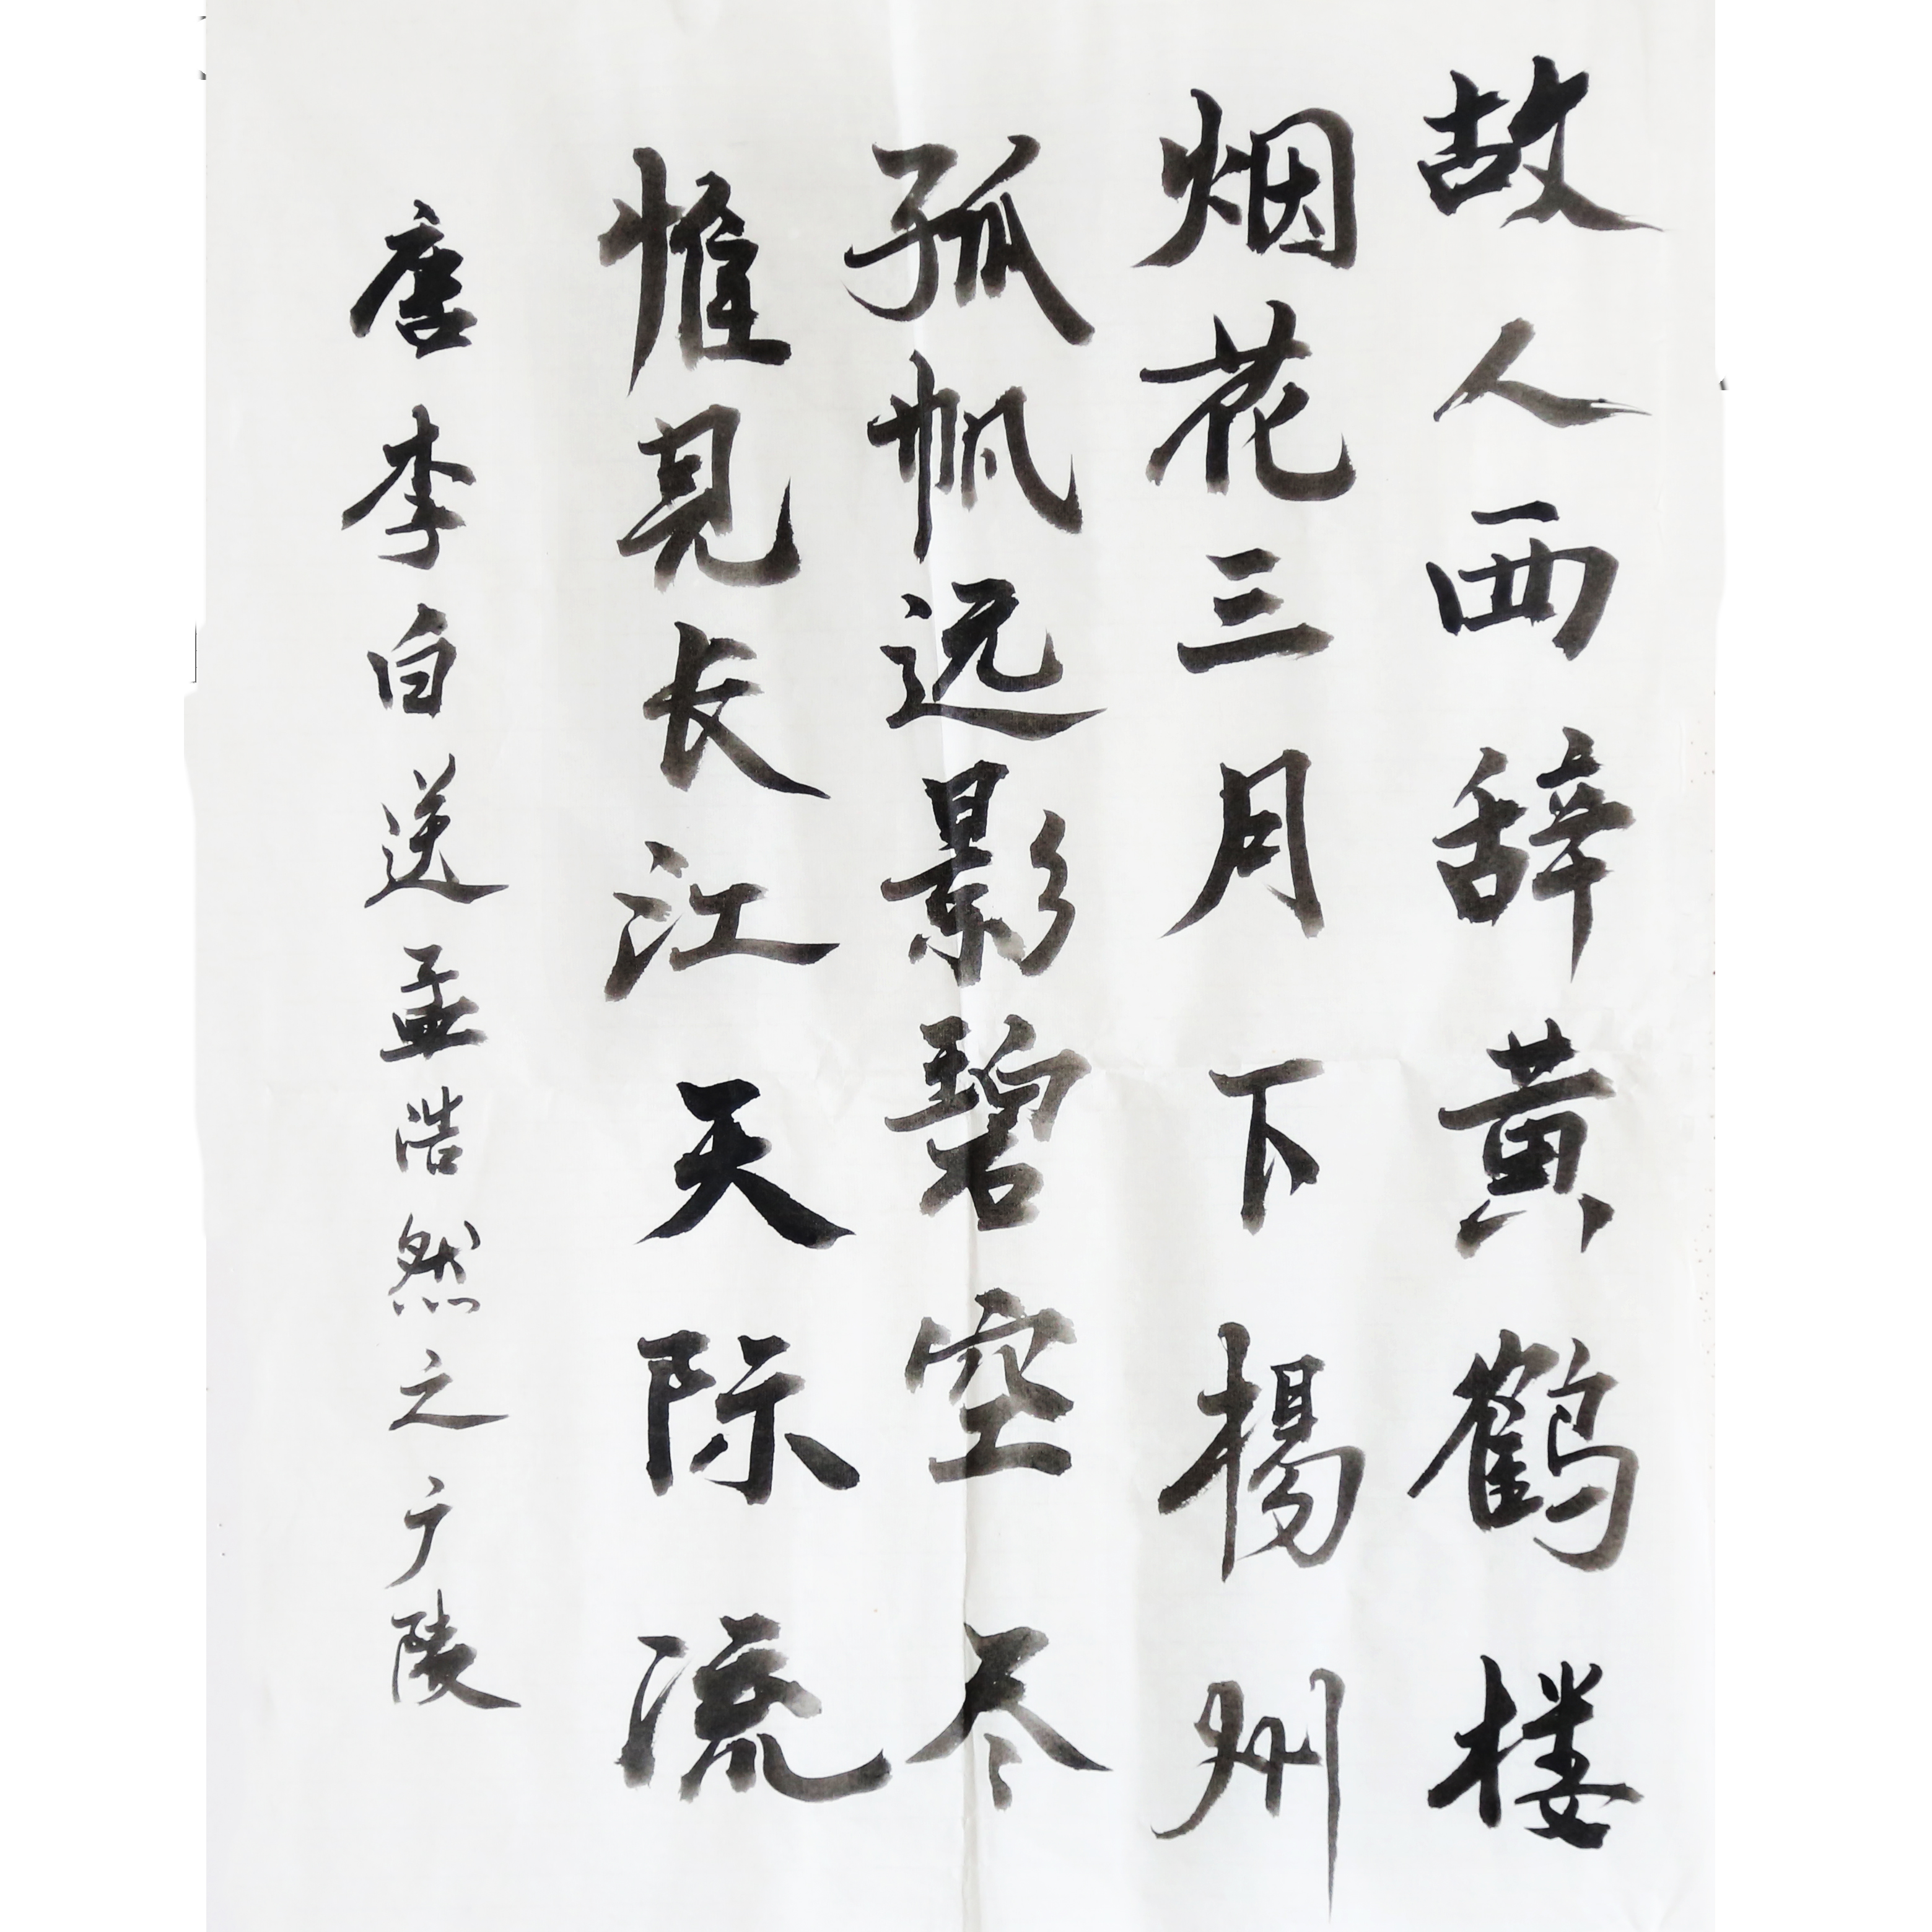 故人西辞黄鹤楼
烟花三月下楊州
孤帆远影碧空尽
惟見长江天际流
唐李白送孟浩然之广陵